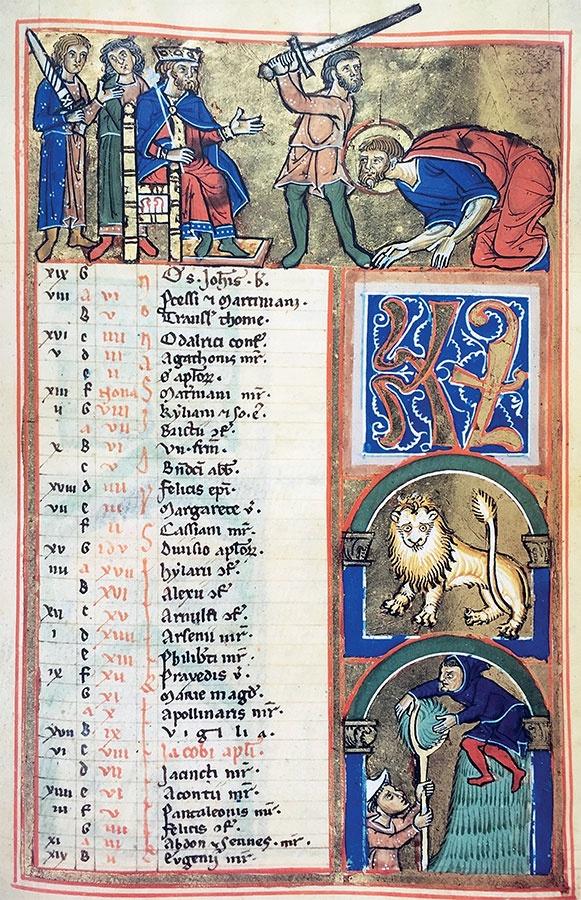 xix G O's. Joh'is. b.
viii a vi P'cessi & Martiniani.
B v Transl' thome.
xvi c iiii Odalrici conf.
v d iii Agathonis mr.
e ii O' aptor.
xiii f Nona Marciani mr.
ii G viii Kyliani & so. e.
a vii Brictii cf.
x B vi Vii. frm.
c v Bndci abb.
xviii d iiii Felicis epi.
vii e iii Margarete v.
f ii Cassiani mr.
xv G idv Diuisio aptor.
iiii a xvii hylarii cf.
B xvi Alexii cf.
xii c xv Arnulfi cf.
i d xiiii Arsenii mr.
e xiii Philibti mr.
ix f xii Praxedis v.
G xi Marie magd.
a x Apollinaris mr.
xvii B ix vigilia.
vi c viii Jacobi apli.
d vii Jacincti mr.
xiiii e vi Acontii mr.
iii f v Pantaleonis mr.
G iiii Felicis cf.
xi a iii Abdon & Sennes. mr.
xix B ii Eugenii mr.
KL